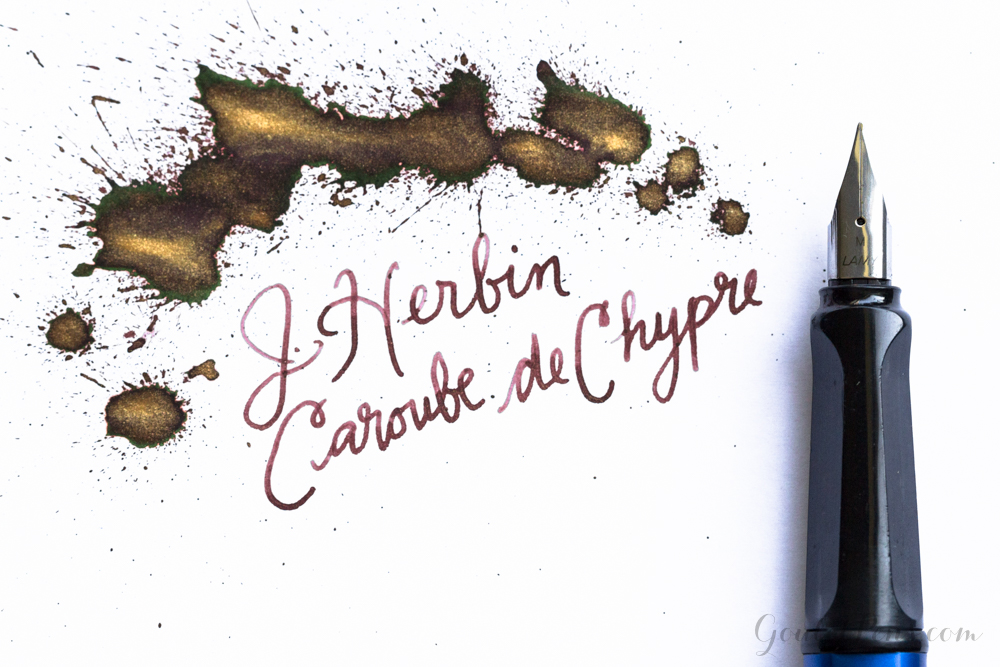 J. Herbin
Caroube de Chypre
M
LAMY